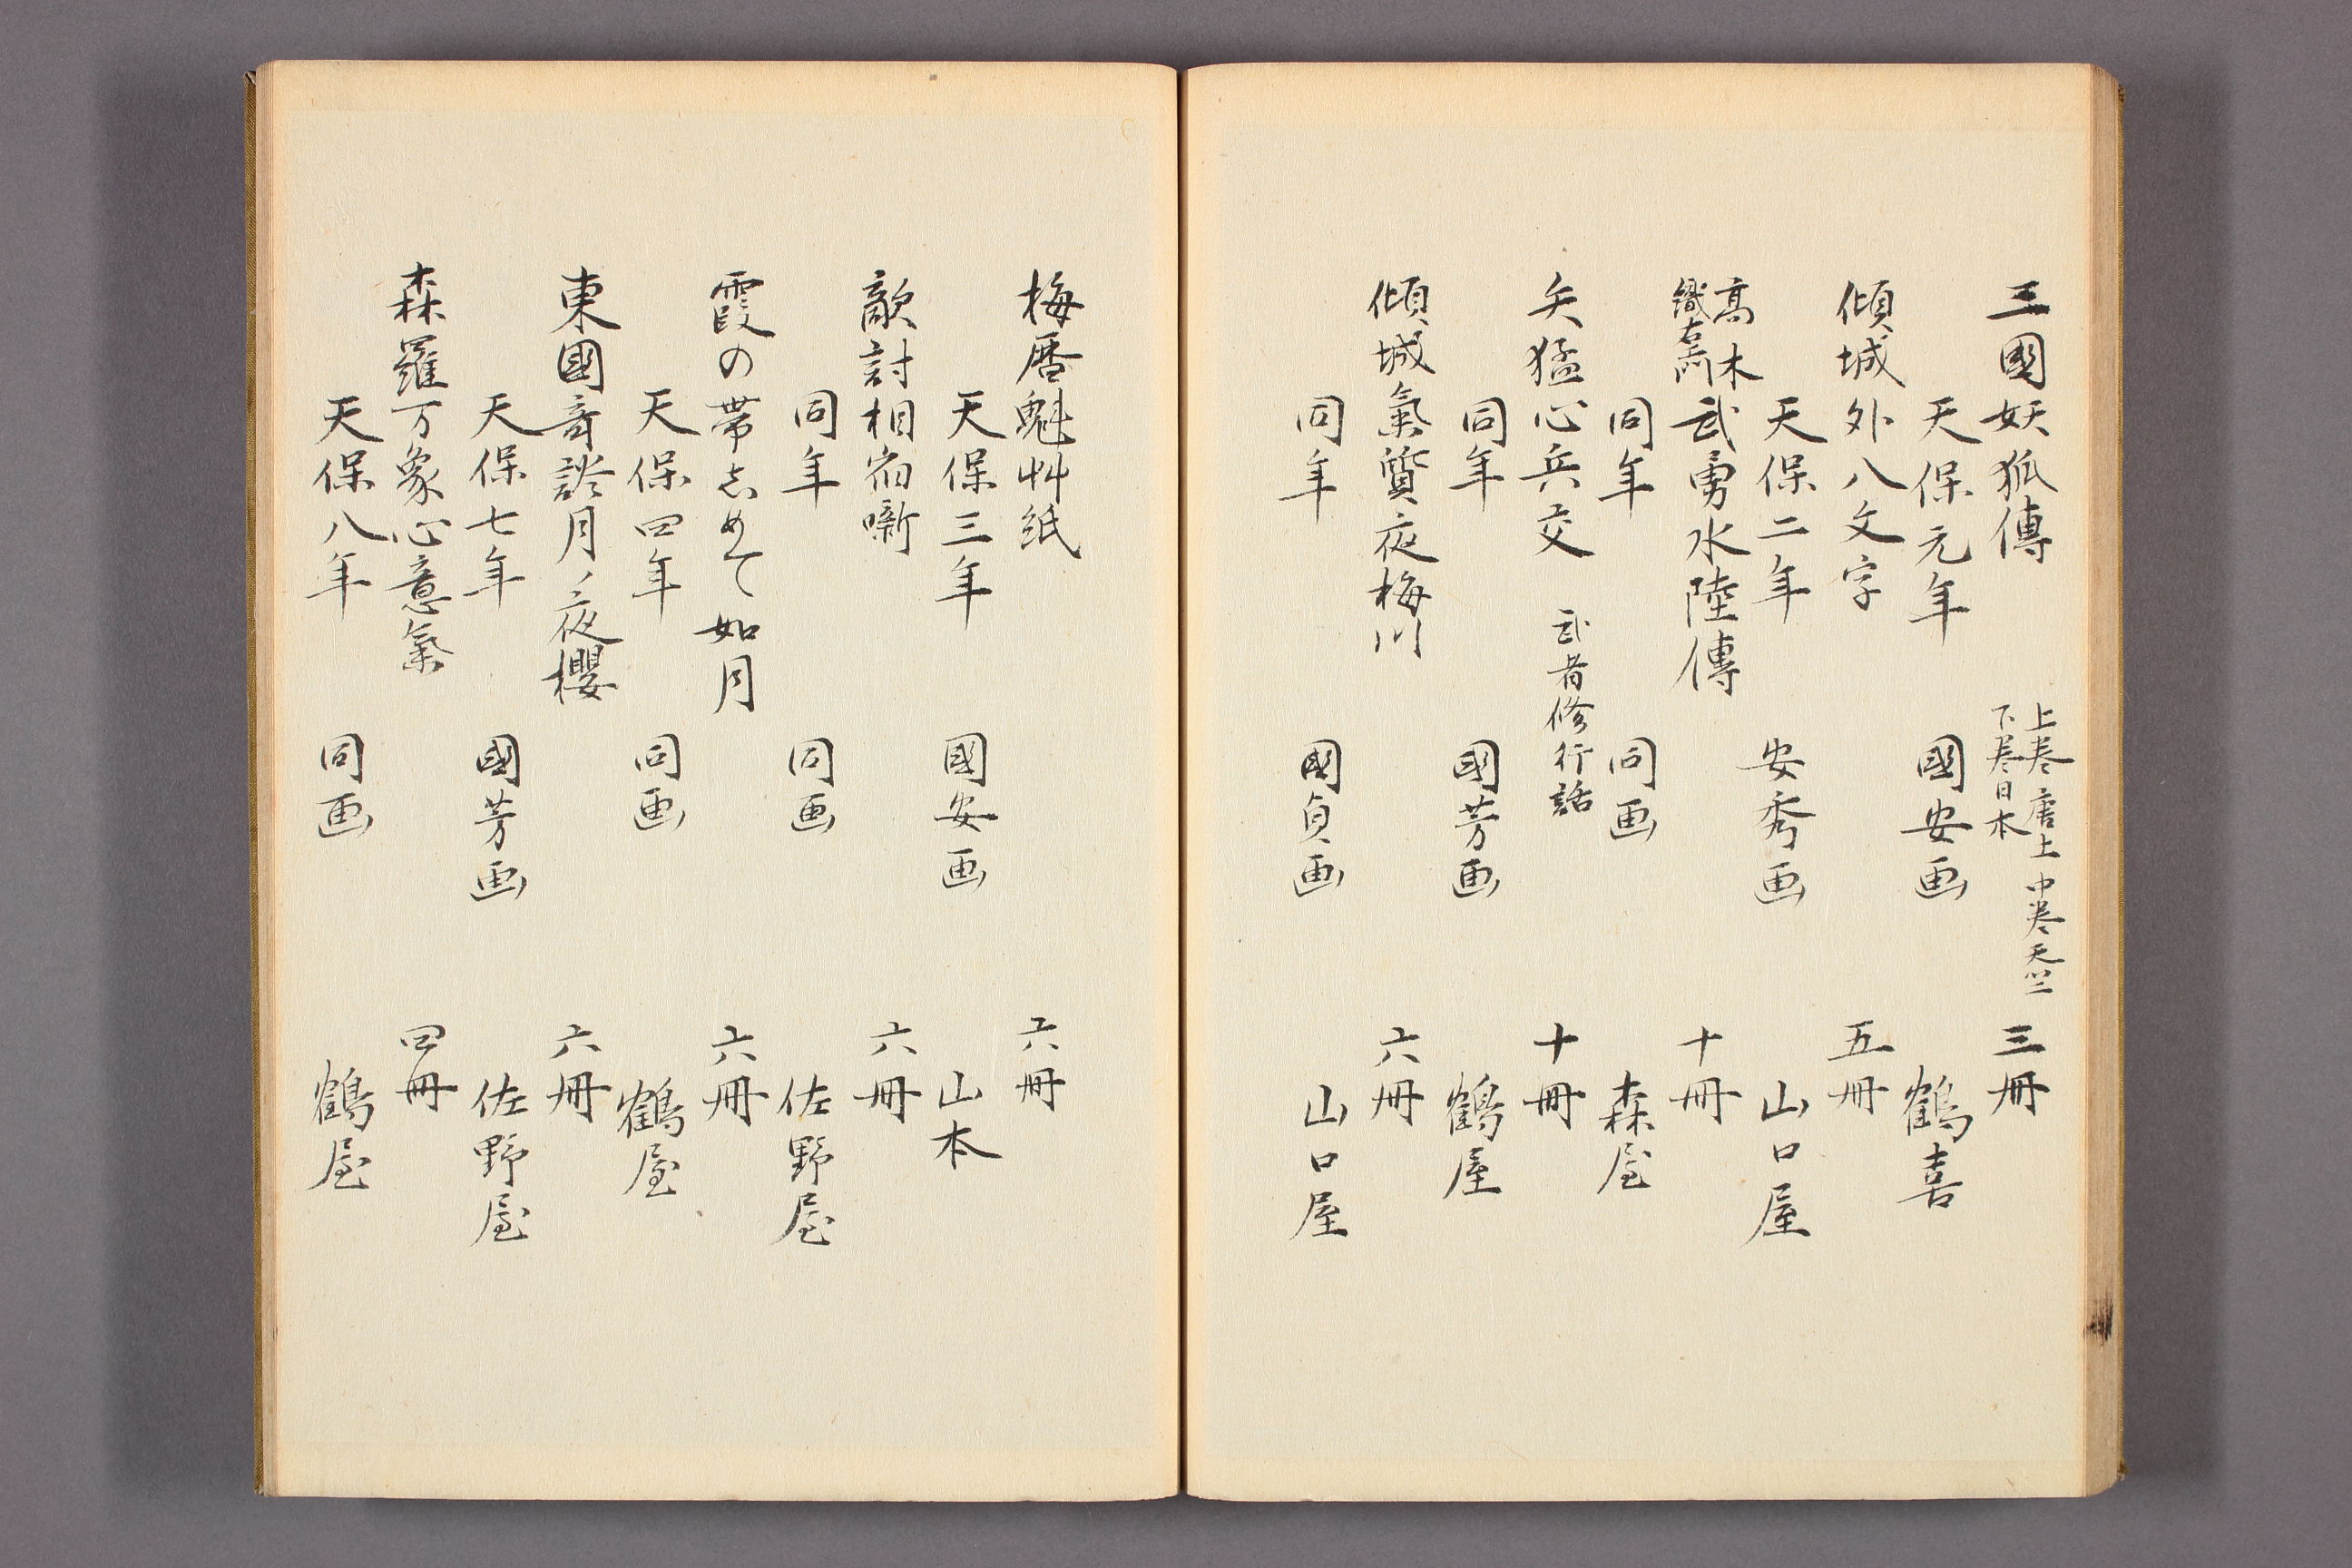 三國妖狐傳 上巻唐土 中巻天竺 下巻日本 三冊
天保元年 國安画 鶴喜
傾城外八文字 五冊
天保二年 安秀画 山口屋
高木 織右衛門 武勇水陸傳 十冊
同年 同画 森屋
矢猛心兵交 武者修行話 十冊
同年 國芳画 鶴屋
傾城氣質夜梅川 六冊
同年 國貞画 山口屋
梅暦魁艸紙 六冊
天保三年 國安画 山本
敵討相宿噺 六冊
同年 同画 佐野屋
霞の帯志めて如月 六冊
天保四年 同画 鶴屋
東國奇談月ノ夜櫻 六冊
天保七年 國芳画 佐野屋
森羅万象心意氣 四冊
天保八年 同画 鶴屋